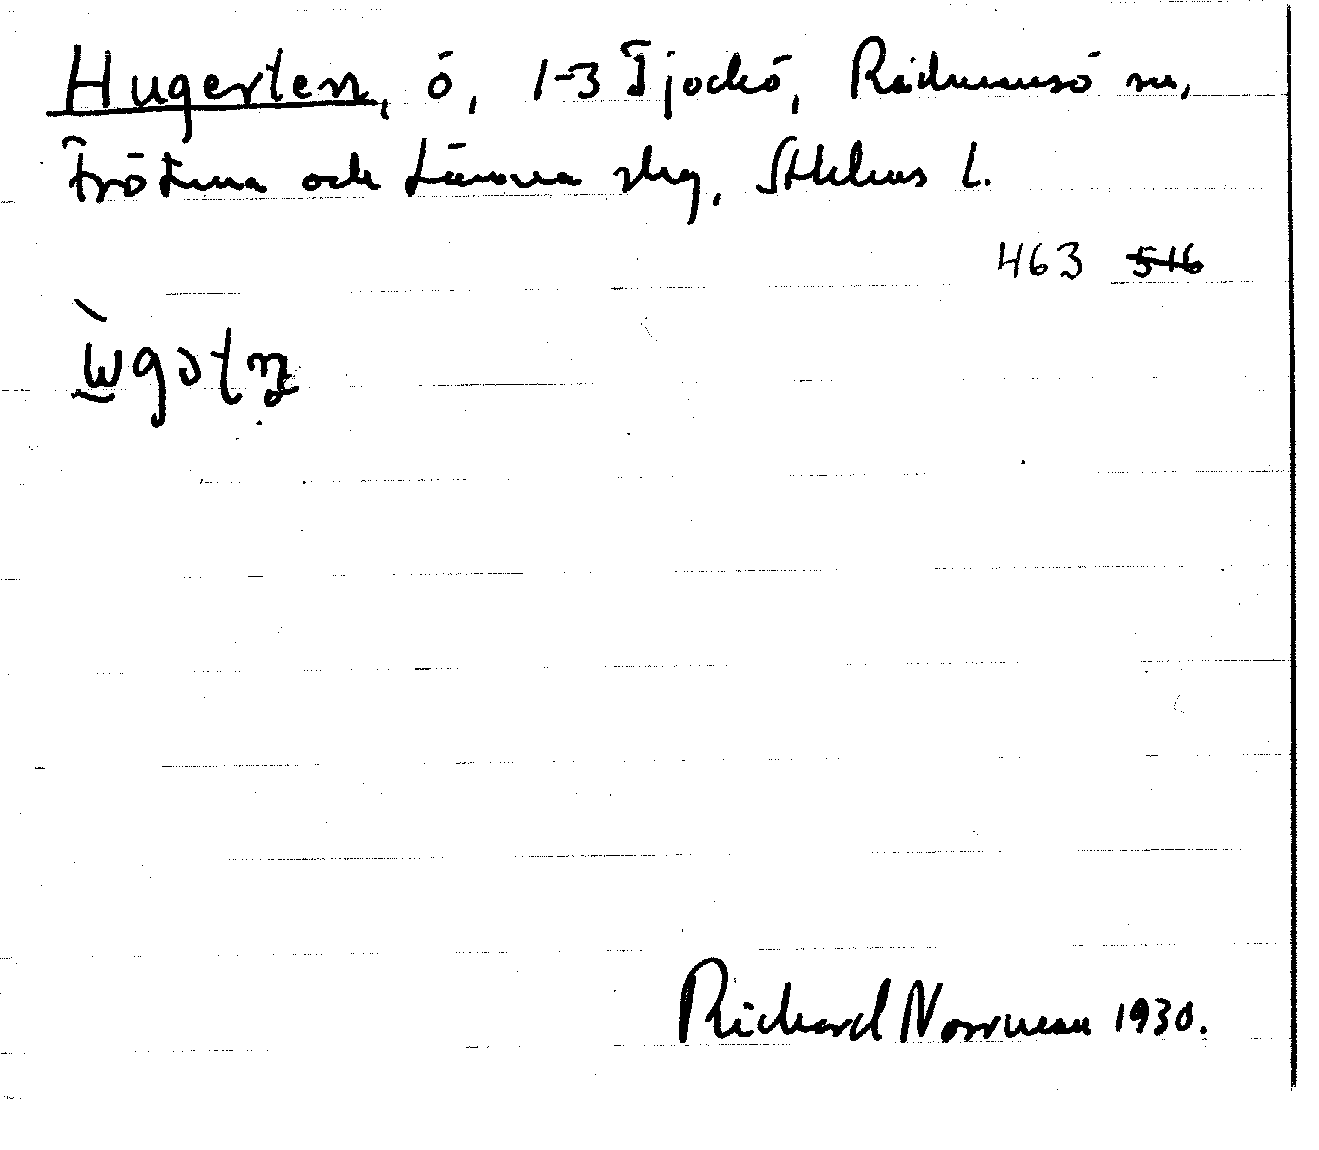 Hugerten, ö, 1-3 Tjockö, Rådmansö sn,
Frötuna och Länna skg, Sthlms l.
463 516
Richard Norrman 1930.